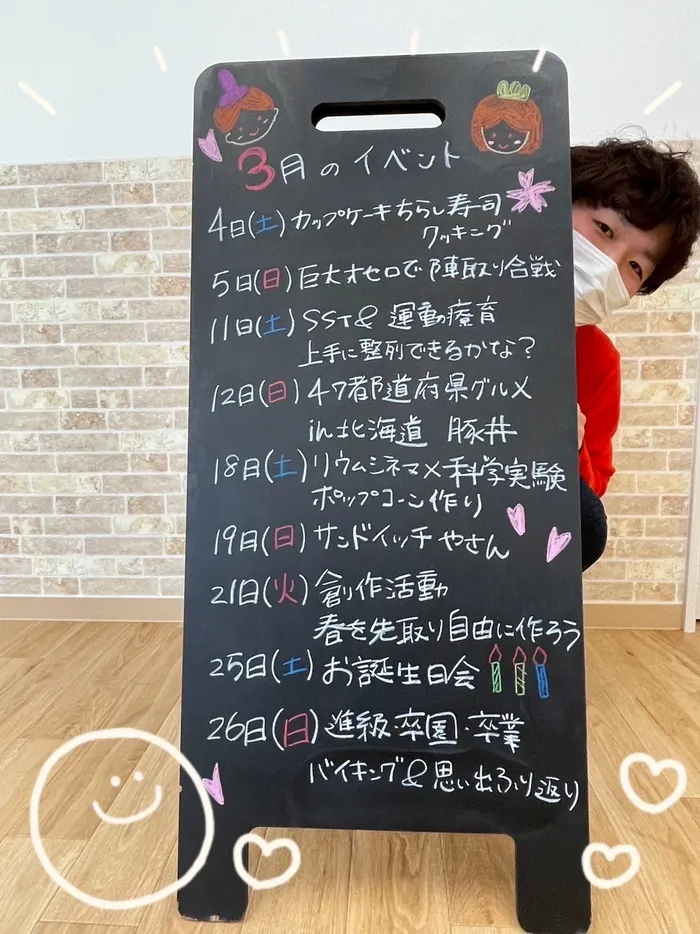 3月のイベント
4日(土)カップケーキちらし寿司
クッキング
5日(日)巨大オセロで陣取り合戦
11日(土)SST& 運動療育
上手に整列できるかな?
12日(日)47都道府県グルメ
in北海道 豚丼
18日(土)リウムシネマ×科学実験
ポップコーン作り
19日(日)サンドイッチやさん
21日(火)創作活動
春を先取り自由に作ろう
25日(土)お誕生日会
26日(日)進級・卒園・卒業
バイキング&思い出ふり返り